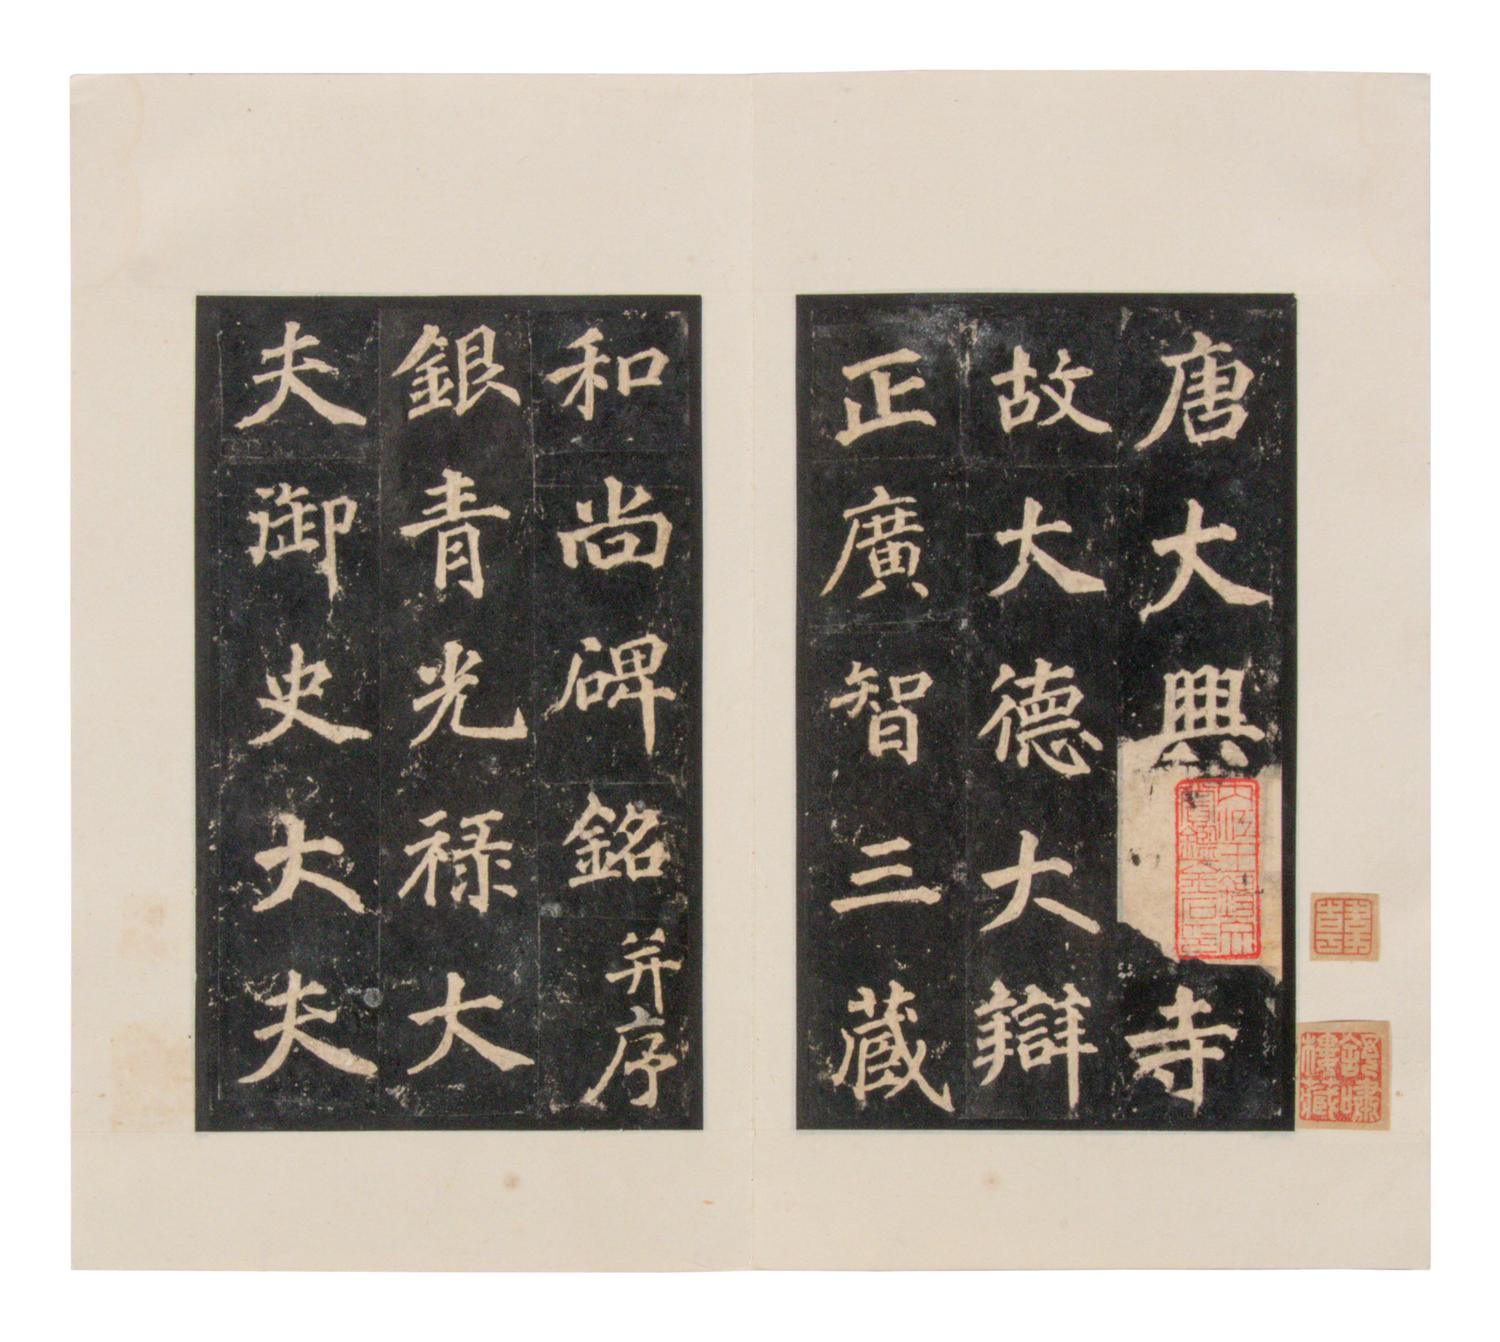 唐大興寺
故大德大辯
正廣智三藏
和尚碑銘并序
銀青光禄大
夫御史大夫